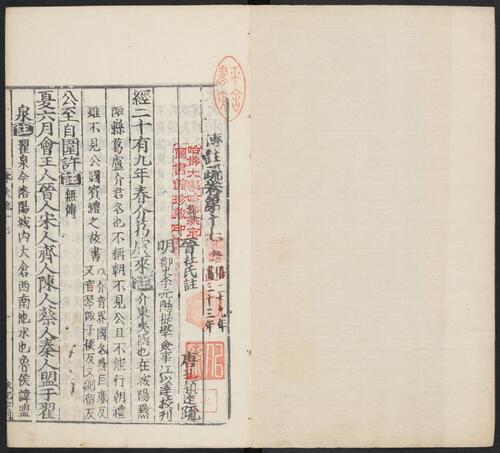 傳註疏卷第十七 僖二十九年
盡三十三年
晉杜氏註 唐孔穎達疏
明御史李元陽提學僉事江以達校刊
經二十有九年春介葛盧來註介東夷國也在城陽黔
陬縣葛盧介君名也不稱朝不見公且不能行朝禮
雖不見公國賓禮之故書
公至自圍許註無傳
夏六月會王人晉人宋人齊人陳人蔡人秦人盟于翟
泉註翟泉今洛陽城內大倉西南池水也魯侯諱盟
哈佛大學哈佛燕京
圖書館珍藏印